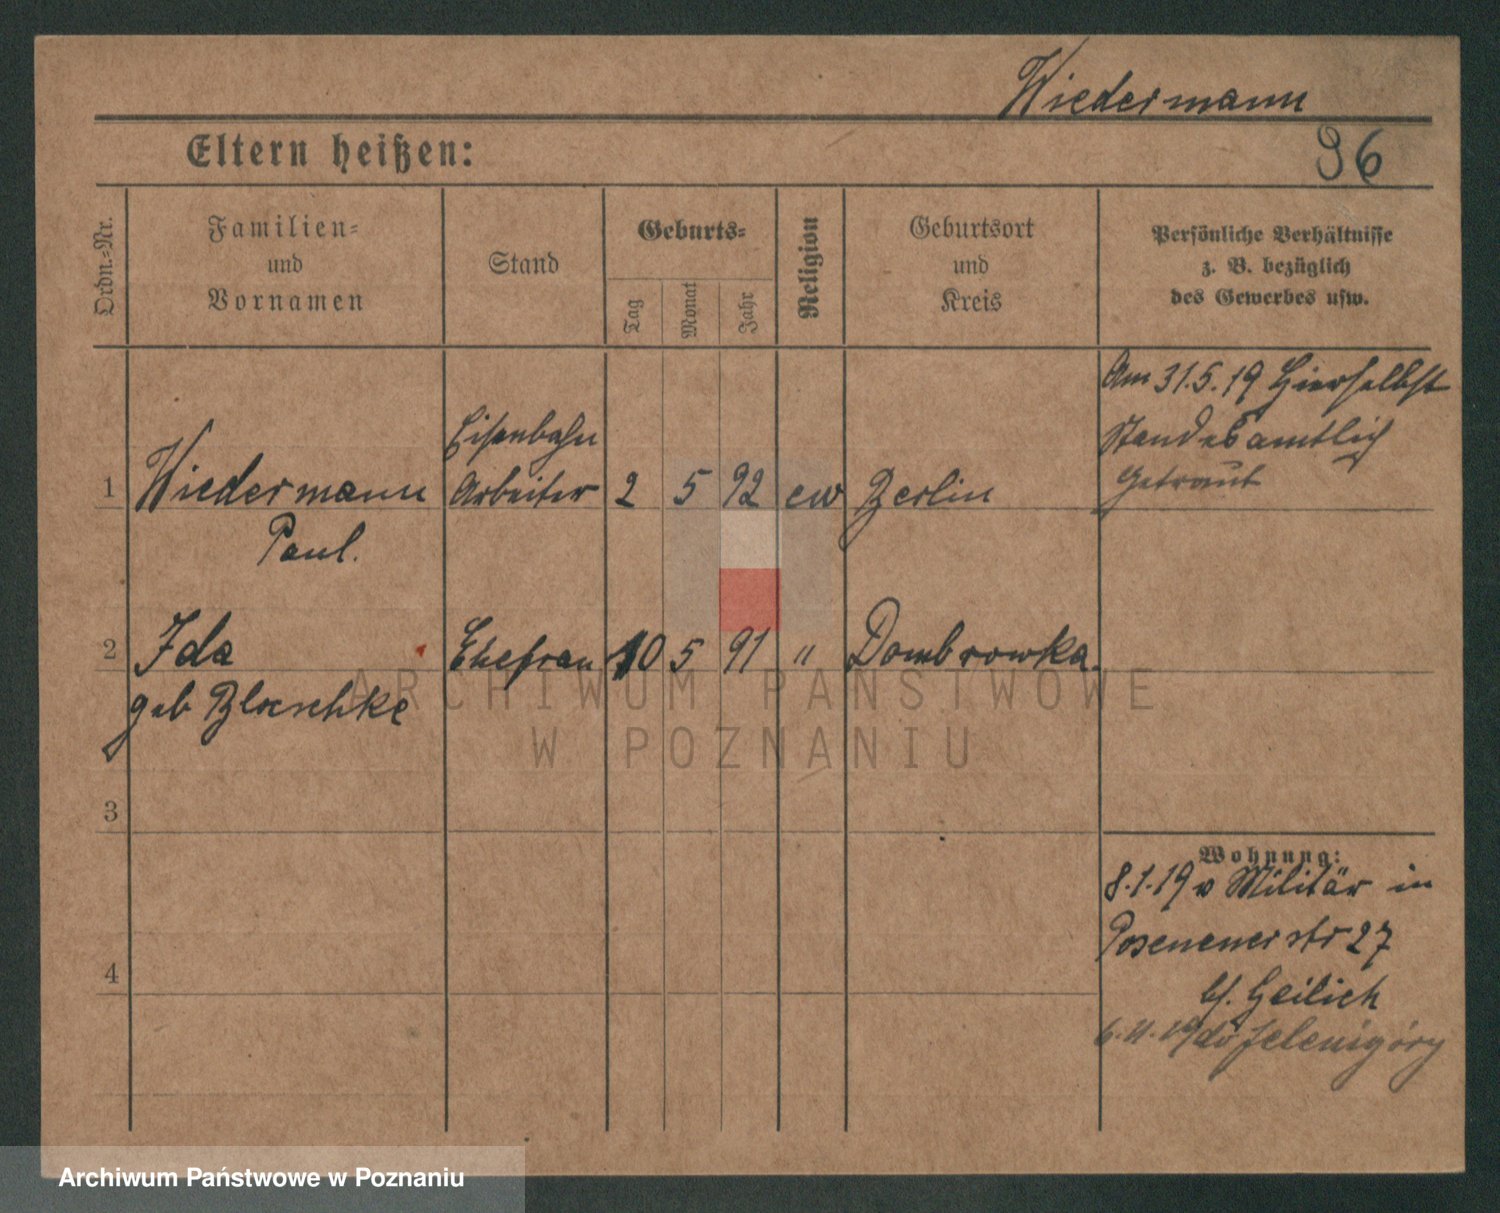 Wiedermann
Eltern heißen:
96
Ordn.-Nr.
Familien-
und
Vornamen
Stand
Geburts-
Tag
Monat
Jahr
Religion
Geburtsort
und
Kreis
Persönliche Verhältnisse
z. B. bezüglich
des Gewerbes usw.
Am 31.5.19 Hierselbst
Standesamtlich
Getraut
1
Wiedermann
Paul.
Eisenbahn
Arbeiter
2
5
92
ew
Berlin
2
Ida
geb Blaschke
Ehefrau
10
5
91
"
Dombrowka.
ARCHIWUM PAŃSTWOWE
W POZNANIU
3
4
Wohnung:
8.1.19 v Militär in
Posenener str 27
bf. Heilich
6.11.19 do Jelenigóry
Archiwum Państwowe w Poznaniu